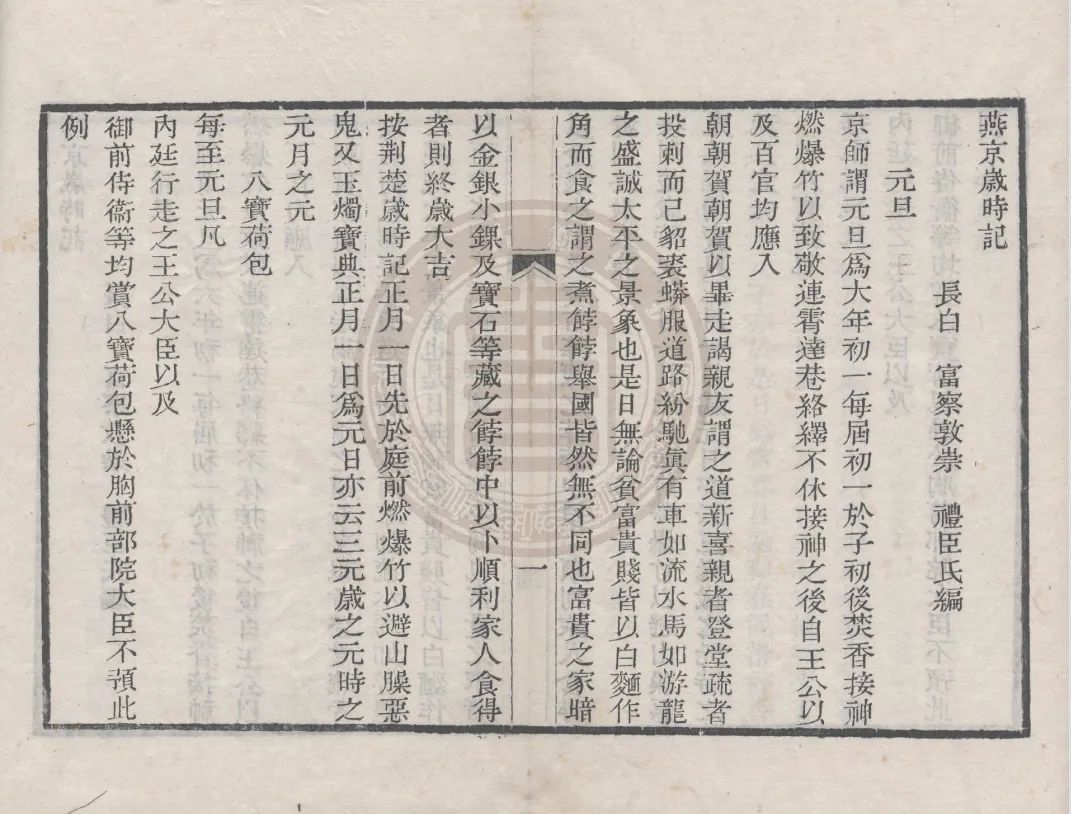 燕京歲時記
長白　富察敦崇　禮臣氏編
元旦
京師謂元旦爲大年初一每屆初一於子初後焚香接神
燃爆竹以致敬連霄達巷絡繹不休接神之後自王公以
及百官均應入
朝朝賀朝賀以畢走謁親友謂之道新喜親者登堂疏者
投刺而已貂裘蟒服道路紛馳眞有車如流水馬如游龍
之盛誠太平之景象也是日無論貧富貴賤皆以白麵作
角而食之謂之煮餑餑舉國皆然無不同也富貴之家暗
一
以金銀小錁及寶石等藏之餑餑中以卜順利家人食得
者則終歲大吉
按荆楚歲時記正月一日先於庭前燃爆竹以避山臊惡
鬼又玉燭寶典正月一日爲元日亦云三元歲之元時之
元月之元
八寶荷包
每至元旦凡
內廷行走之王公大臣以及
御前侍衞等均賞八寶荷包懸於胸前部院大臣不預此
例